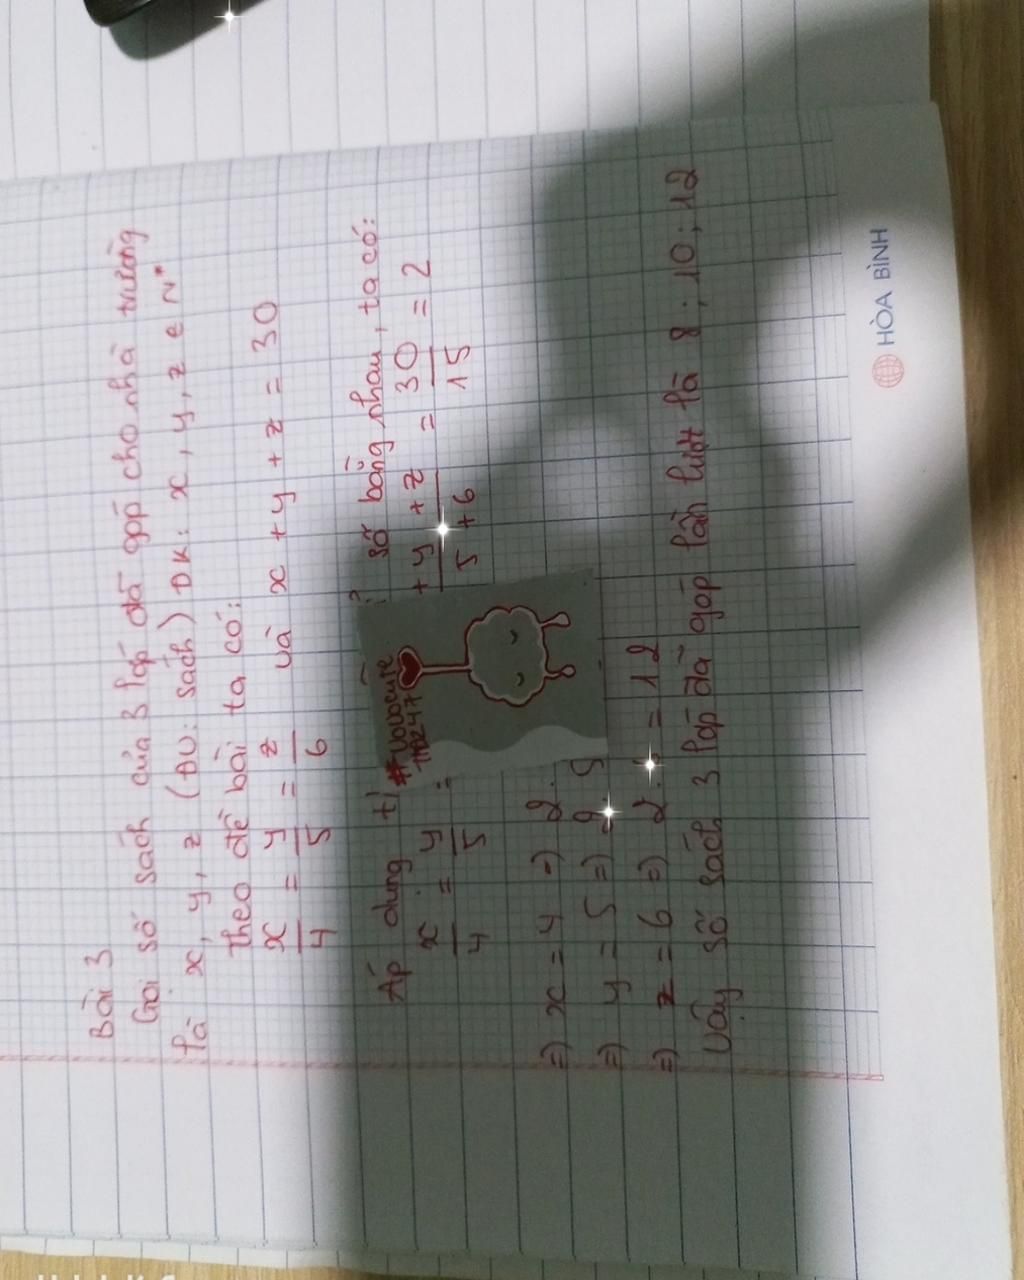 Bài 3
Gọi số sách của 3 lớp đã góp cho nhà trường
là x, y, z (ĐV: sách) ĐK: x, y, z e N*
theo đề bài ta có:
x/4 = y/5 = z/6 và x + y + z = 30
Áp dung số bằng nhau, ta có:
x/4 = y/5 = + y + z / 5 + 6 = 30/15 = 2
#vovocute
1110247
=) x = 4 =) 2.
=) y = 5 =) 2. 5
=) z = 6 =) 2. = 12
Vậy số sách 3 lớp đã góp lần lượt là 8; 10; 12
HÒA BÌNH